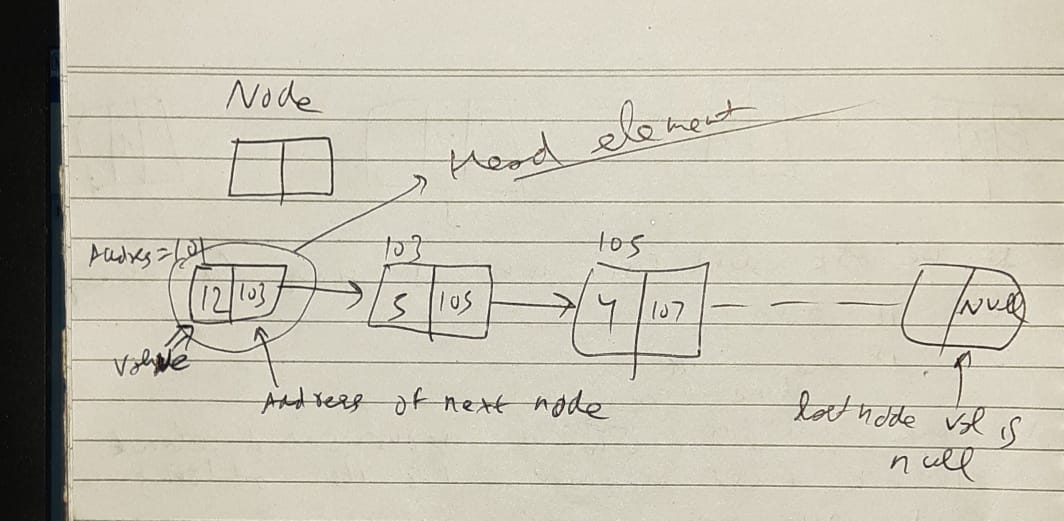 Node
Head element
Address=101 103 105
12 103 5 105 4 107 Null
Value
Address of next node
last node val is
null